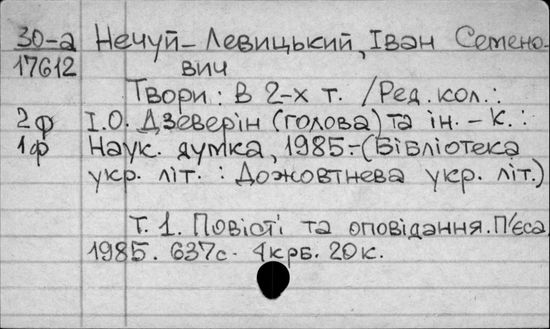 30-а Нечуй-Левицький, Іван Семено-
17612 вич
Твори: В 2-х т. /Ред. кол.:
2ф І.О. Дзеверін (голова) та ін. - К.:
1ф Наук. думка, 1985.-(Бібліотека
укр. літ.: Дожовтнева укр. літ.)
Т. 1. Повісті та оповідання. П'єса,
1985. 637с. 4крб. 20к.